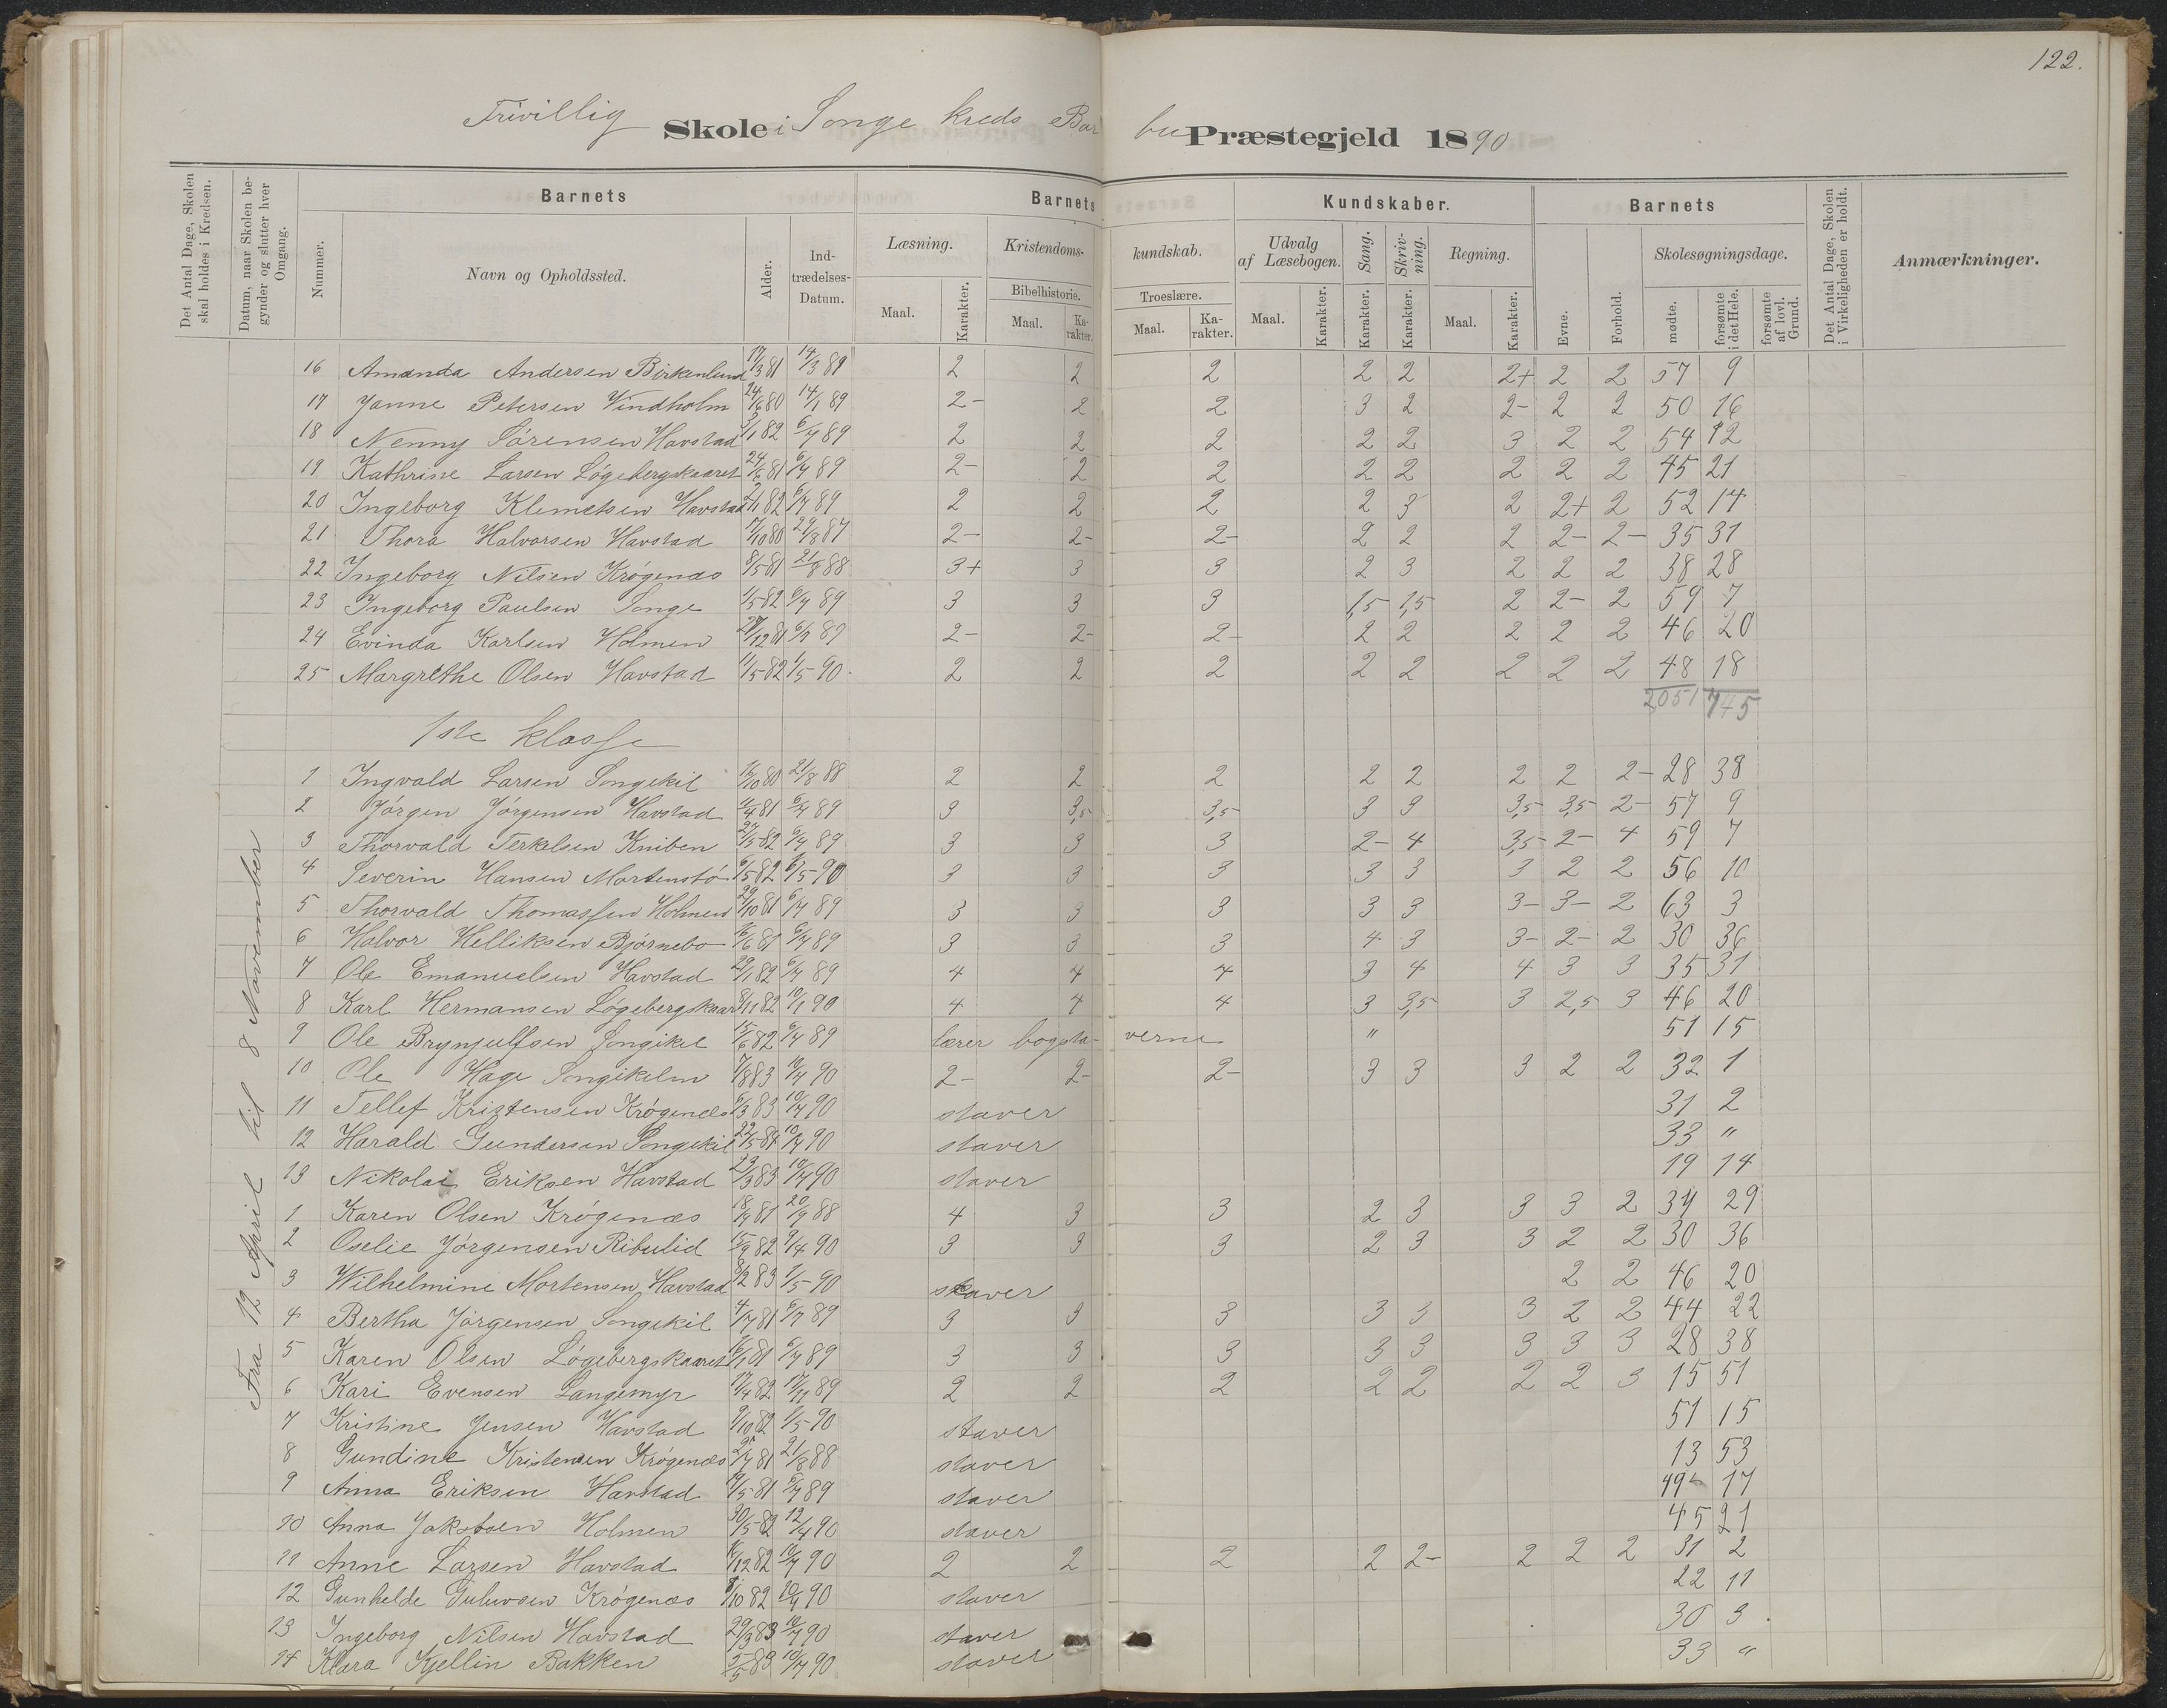 122.
Frivillig Skole i Songe kreds Barbu Præstegjeld 1890
Det Antal Dage, Skolen skal holdes i Kredsen.
Datum, naar Skolen begynder og slutter hver Omgang.
Barnets
Nummer.
Navn og Opholdssted.
Alder.
Indtrædelses-Datum.
Barnets Kundskaber.
Læsning.
Maal. Karakter.
Kristendomskundskab.
Bibelhistorie.
Maal. Karakter.
Troeslære.
Maal. Karakter.
Udvalg af Læsebogen.
Maal. Karakter.
Sang. Karakter.
Skrivning. Karakter.
Regning.
Maal. Karakter.
Barnets
Evne. Forhold.
Skolesøgningsdage.
mødte. forsømte i det Hele. forsømte af lovl. Grund.
Det Antal Dage, Skolen i Virkeligheden er holdt.
Anmærkninger.
16 Amanda Andersen Birkenlund 17/3 81 14/3 89 2 2 2 2 2 2+ 2 2 57 9
17 Janne Petersen Vindholm 24/6 80 14/1 89 2- 2 2 3 2 2- 2 2 50 16
18 Nenny Sørensen Havstad 82 89 2 2 2 2 2 3 2 2 54 12
19 Kathrine Larsen Løgebergskaaret 24/6 81 89 2- 2 2 2 2 2 2 2 45 21
20 Ingeborg Klemetsen Havstad 82 89 2 2 2 2 3 2 2+ 2 52 14
21 Thora Halvorsen Havstad 17/10 80 29/8 87 2- 2- 2- 2 2 2 2- 2- 35 31
22 Ingeborg Nilsen Krøgenæs 8/5 81 21/8 88 3+ 3 3 2 3 2 2 2 38 28
23 Ingeborg Paulsen Songe 1/5 82 89 3 3 3 1,5 1,5 2 2- 2 59 7
24 Evinda Karlsen Holmen 81 89 2- 2- 2- 2 2 2 2 2 46 20
25 Margrethe Olsen Havstad 11/5 82 1/5 90 2 2 2 2 2 2 2 2 48 18
2051 745
1ste klasse
Fra 12 April til 8 November
1 Ingvald Larsen Songekil 16/10 80 21/8 88 2 2 2 2 2 2 2 2- 28 38
2 Jørgen Jørgensen Havstad 11/4 81 89 3 3,5 3,5 3 3 3,5 3,5 2- 57 9
3 Thorvald Terkelsen Kniben 27/5 82 89 3 3 3 2- 4 3,5 2- 4 59 7
4 Severin Hansen Mortenstø 6/5 82 90 3 3 3 3 3 3 2 2 56 10
5 Thorvald Thomassen Holmen 29/10 81 89 3 3 3 3 3 3- 3- 2 63 3
6 Halvor Helliksen Bjørnebo 81 89 3 3 3 4 3 3- 2- 2 30 36
7 Ole Emanuelsen Havstad 29/1 82 89 4 4 4 3 4 4 3 3 35 31
8 Karl Hermansen Løgebergskaar 82 90 4 4 4 3 3,5 3 2,5 3 46 20
9 Ole Brynjulfsen Songikil 15/6 82 89 lærer bogstaverne " 51 15
10 Ole Hage Songikelm 7/8 83 90 2- 2- 2- 3 3 3 2 2 32 1
11 Tellef Kristensen Krøgenæs 6/3 83 90 staver 31 2
12 Harald Gundersen Songekil 22/5 84 90 staver 33 "
13 Nikolai Eriksen Havstad 23/3 83 90 staver 19 14
1 Karen Olsen Krøgenæs 81 88 4 3 3 2 3 3 3 2 34 29
2 Oselie Jørgensen Ribulid 15/9 82 90 3 3 3 2 3 3 2 2 30 36
3 Wilhelmine Mortensen Havstad 83 90 staver 2 2 46 20
4 Bertha Jørgensen Songekil 81 89 3 3 3 3 3 3 2 2 44 22
5 Karen Olsen Løgebergskaaret 81 89 3 3 3 3 3 3 3 3 28 38
6 Kari Evensen Langemyr 17/4 82 17/11 89 2 2 2 2 2 2 2 3 15 51
7 Kristine Jensen Havstad 9/10 82 90 staver 51 15
8 Gundine Kristensen Krøgenæs 81 21/8 88 staver 13 53
9 Anna Eriksen Havstad 81 89 staver 49 17
10 Anna Jakobsen Holmen 30/5 82 12/4 90 staver 45 21
11 Anne Larsen Havstad 82 90 2 2 2 2 2- 2 2 2 31 2
12 Gunhelde Krøgenæs 82 90 staver 22 11
13 Ingeborg Nilsen Havstad 29/3 83 90 staver 30 3
14 Klara Kjellin Bakken 5/5 83 90 staver 33 "